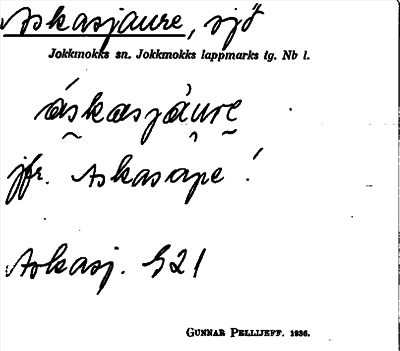 Askasjaure, sjö
Jokkmokks sn. Jokkmokks lappmarks tg. Nb l.
áskasjàurę
jfr. Askasape!
Askasj. S21
GUNNAR PELLIJEFF. 1936.